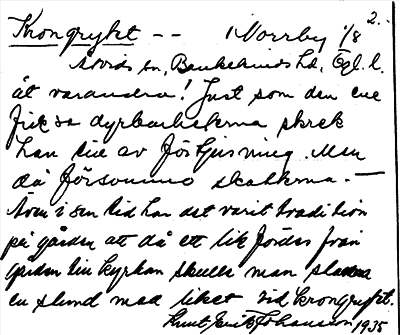 2.
Krongrykt -- i Norrby 1/8
Åtvids sn, Bankekinds hd, Ögl. l.
åt varandra! Just som den ene
fick se dyrbarheterna skrek
han till av förtjusning. Men
då försvunno skatterna. –
Som i sen tid har det varit tradition
på gården att då ett lik fördes från
gården till kyrkan skulle man stanna
en stund med liket vid krongrykt.
Knut Erik Johansson 1935